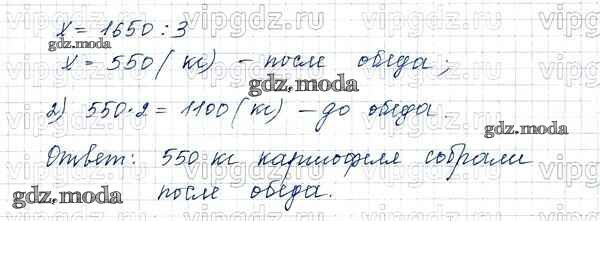 x = 1650 : 3
x = 550 (кг) – после обеда;
2) 550·2 = 1100 (кг) – до обеда.
Ответ: 550 кг картофеля собрали
после обеда.
gdz.moda
gdz.moda
gdz.moda
gdz.moda
vipgdz.ru